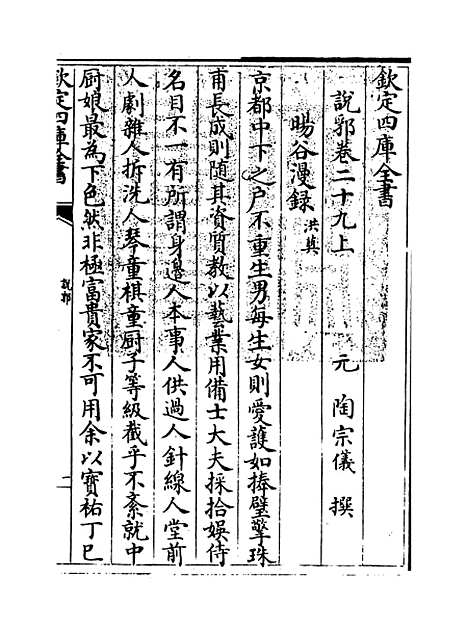 欽定四庫全書
說郛卷二十九上
元 陶宗儀 撰
暘谷漫録 洪巽
京都中下之户不重生男每生女則愛護如捧璧擎珠
甫長成則随其資質教以藝業用備士大夫採拾娛侍
名目不一有所謂身邉人本事人供過人針線人堂前
人劇雜人拆洗人琴童棋童厨子等級截乎不紊就中
厨娘最為下色然非極富貴家不可用余以寳祐丁巳
欽定四庫全書
說郛
二